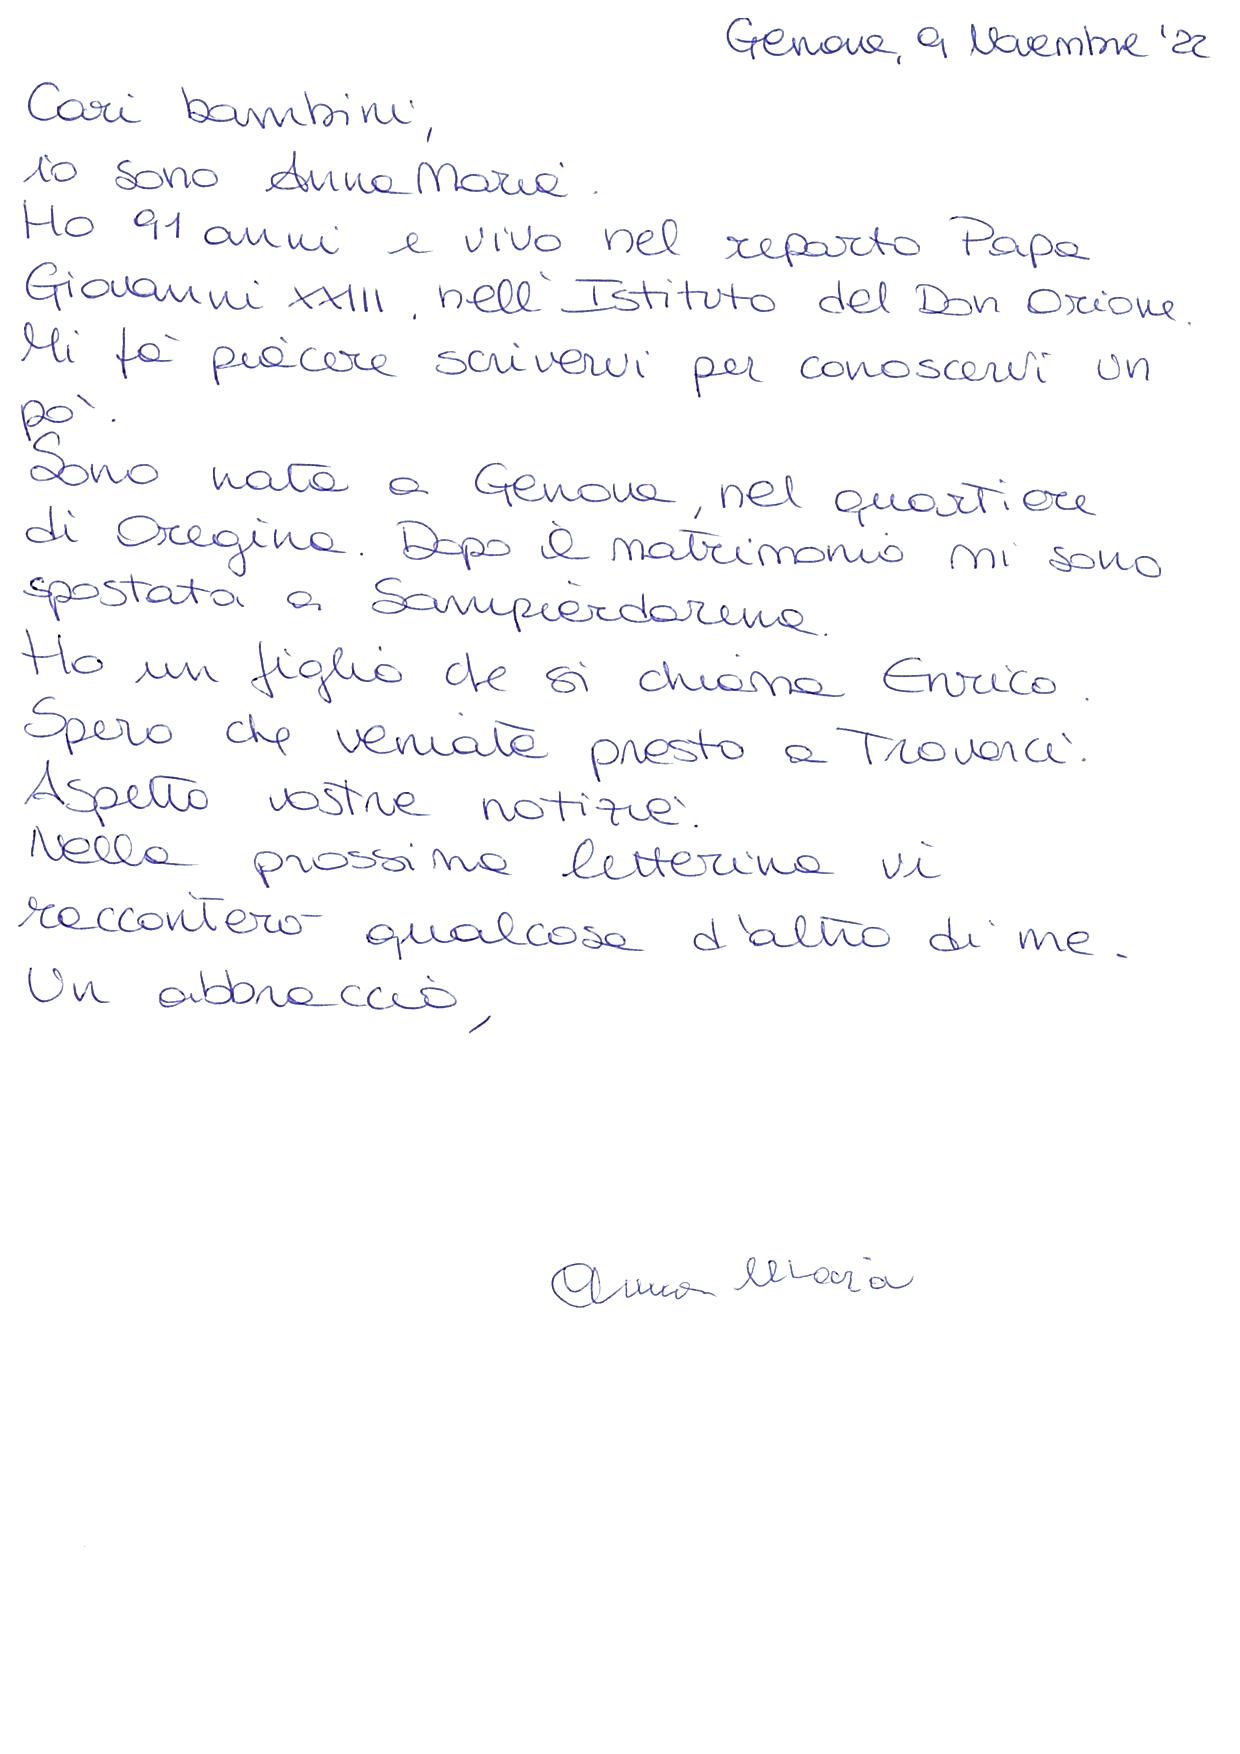 Genova, 9 Novembre '22
Cari bambini,
io sono Anna Maria.
Ho 91 anni e vivo nel reparto Papa
Giovanni XXIII, nell'Istituto del Don Orione.
Mi fà piacere scrivervi per conoscervi un
pò.
Sono nata a Genova, nel quartiere
di Oregina. Dopo il matrimonio mi sono
spostata a Sampierdarena.
Ho un figlio che si chiama Enrico.
Spero che veniate presto a Trovarci.
Aspetto vostre notizie.
Nella prossima letterina vi
racconterò qualcosa d'altro di me.
Un abbraccio,
Anna Maria